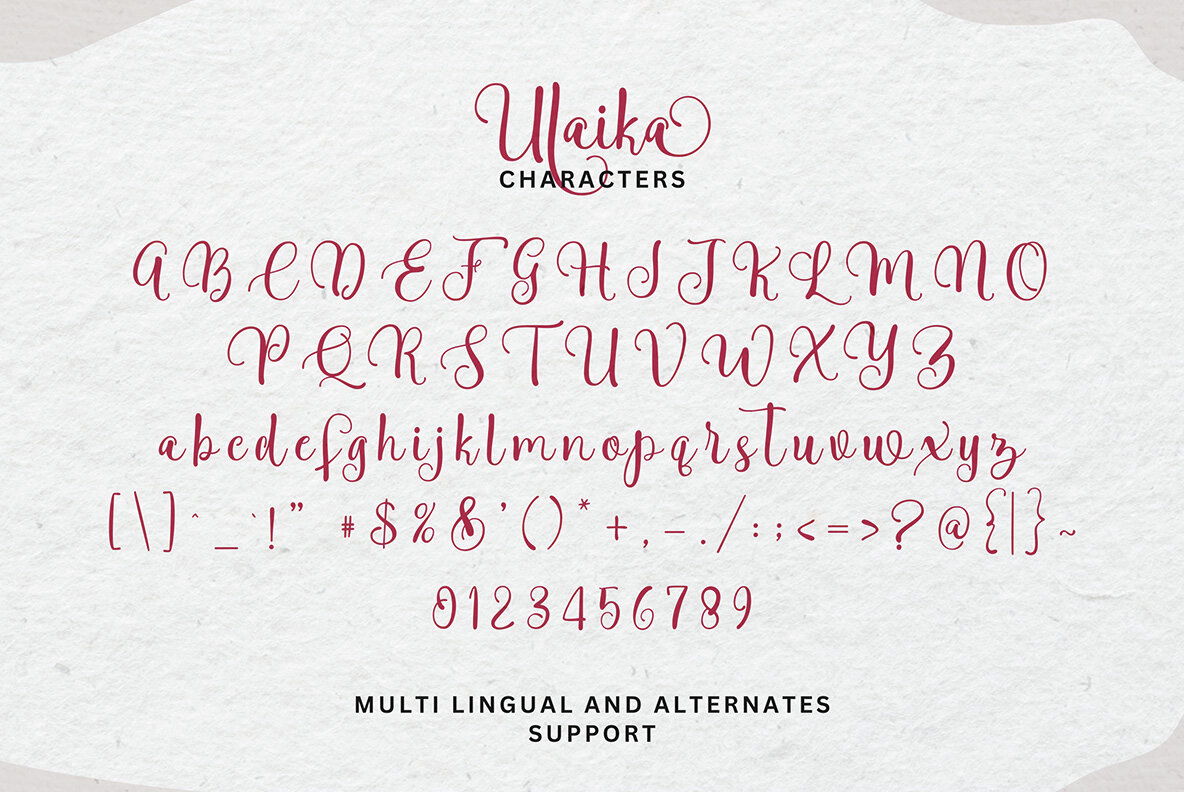 Ulaika
CHARACTERS
A B C D E F G H I J K L M N O
P Q R S T U V W X Y Z
a b c d e f g h i j k l m n o p q r s t u v w x y z
[ \ ] ^ _ ` ! " # $ % & ' ( ) * + , - . / : ; < = > ? @ { | } ~
0 1 2 3 4 5 6 7 8 9
MULTI LINGUAL AND ALTERNATES
SUPPORT